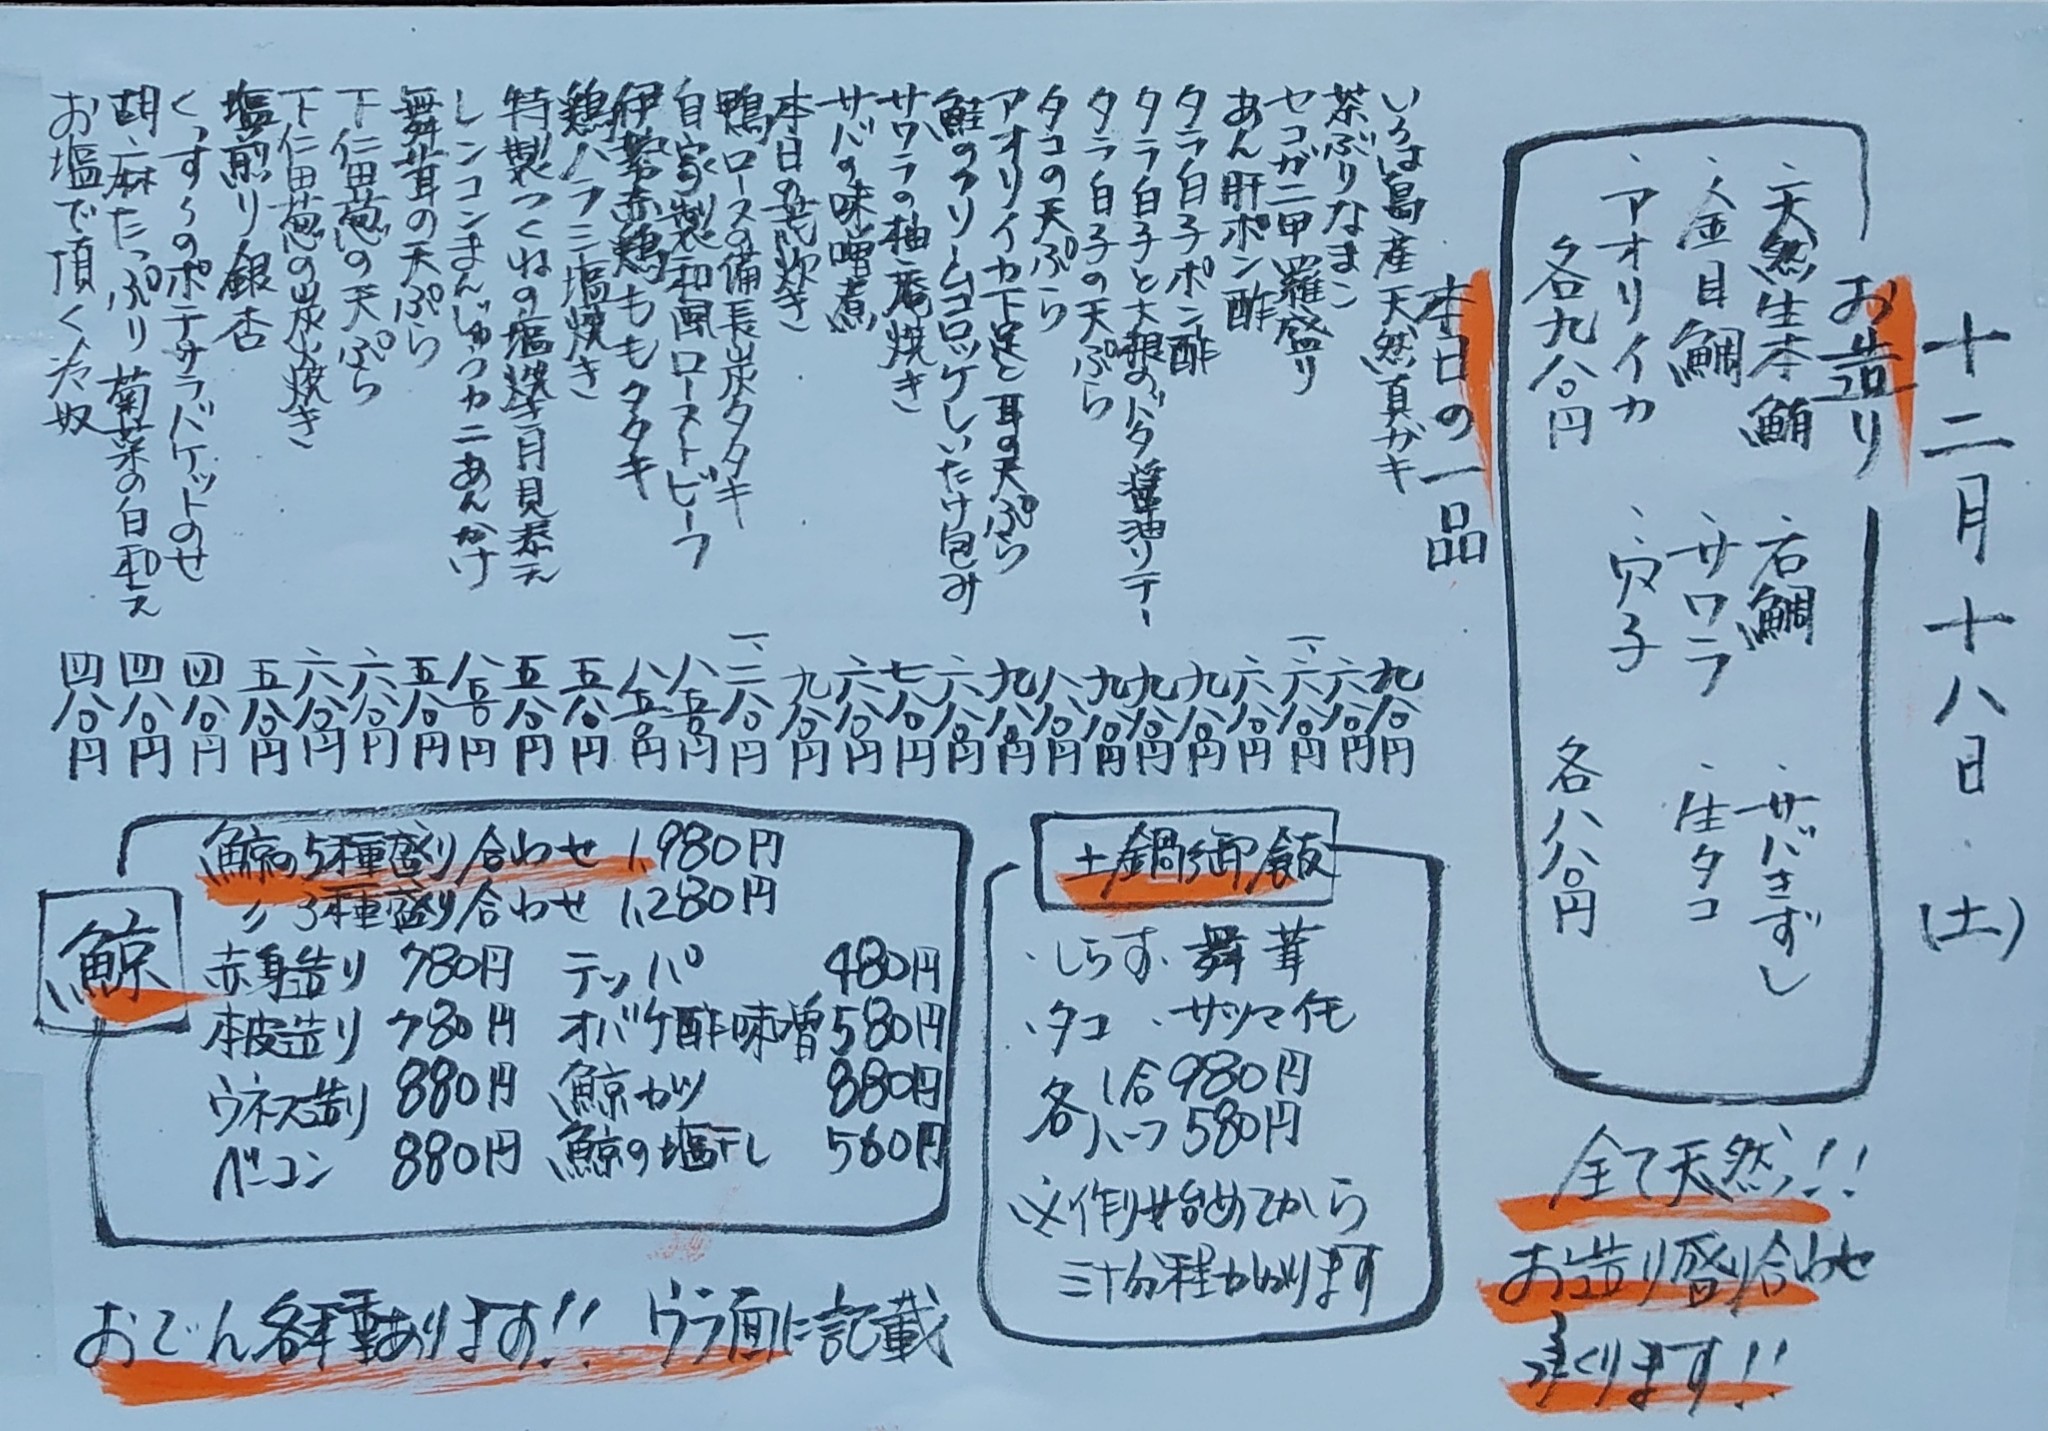 十二月十八日(土)
お造り
・天然生本鮪
・金目鯛
・アオリイカ
各九八〇円
・石鯛
・サワラ
・穴子
・サバきずし
・生タコ
各八八〇円
全て天然!!
お造り盛り合わせ
承ります!!
本日の一品
いろは島産天然真ガキ 九八〇円
茶ぶりなまこ 六八〇円
セコガニ甲羅盛り 一、六八〇円
あん肝ポン酢 六八〇円
タラ白子ポン酢 九八〇円
タラ白子と大根のバタ醤油ソテー 九八〇円
タラ白子の天ぷら 九八〇円
タコの天ぷら 八八〇円
アオリイカ下足と耳の天ぷら 九八〇円
鮭のクリームコロッケしいたけ包み 六八〇円
サワラの柚庵焼き 七八〇円
サバの味噌煮 六八〇円
本日の荒炊き 九八〇円
鴨ロースの備長炭タタキ 一、二八〇円
自家製和風ローストビーフ 八五〇円
伊勢赤鶏ももタタキ 八五〇円
鶏ハラミ塩焼き 五八〇円
特製つくねの塩焼き月見添え 五八〇円
レンコンまんじゅうカニあんかけ 八五〇円
舞茸の天ぷら 五八〇円
下仁田葱の天ぷら 六八〇円
下仁田葱の炭火焼き 六八〇円
塩煎り銀杏 五八〇円
くっすくのポテサラバケットのせ 四八〇円
胡麻たっぷり菊菜の白和え 四八〇円
お塩で頂く冷奴 四八〇円
土鍋御飯
・しらす・舞茸
・タコ・サツマイモ
各1合 980円
各ハーフ 580円
※作り始めてから
三十分程かかります
鯨
鯨の5種盛り合わせ 1,980円
〃 3種盛り合わせ 1,280円
赤身造り 780円 テッパ 480円
本皮造り 780円 オバケ酢味噌 580円
ウネス造り 880円 鯨カツ 880円
ベーコン 880円 鯨の塩干し 560円
おでん各種あります!! ウラ面に記載